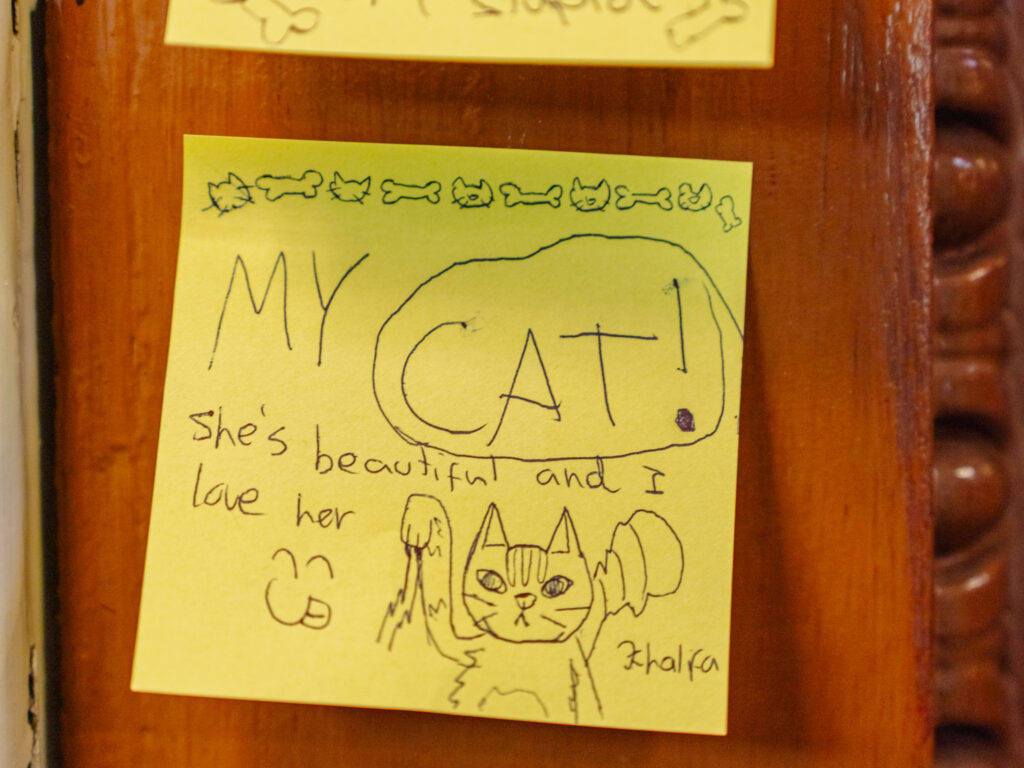 MY CAT!
She's beautiful and I
love her
Khalfa